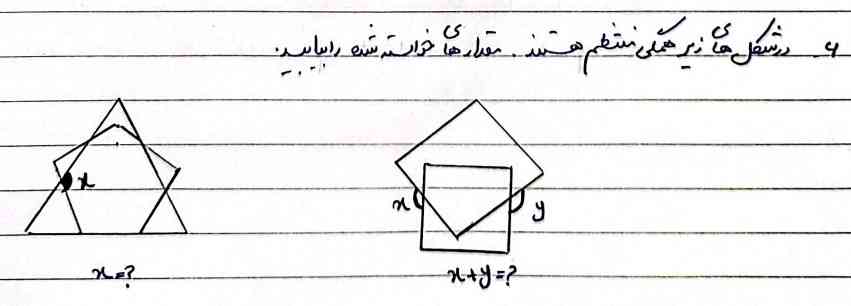 ۶. در شکل های زیر همگی منتظم هستند. مقدارهای خواسته شده را بیابید.
x
x
y
x=?
x+y=?